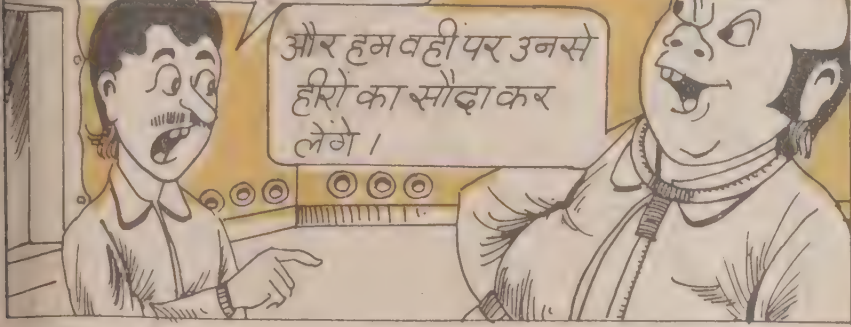 और हम वहीं पर उनसे
हीरों का सौदा कर
लेंगे।